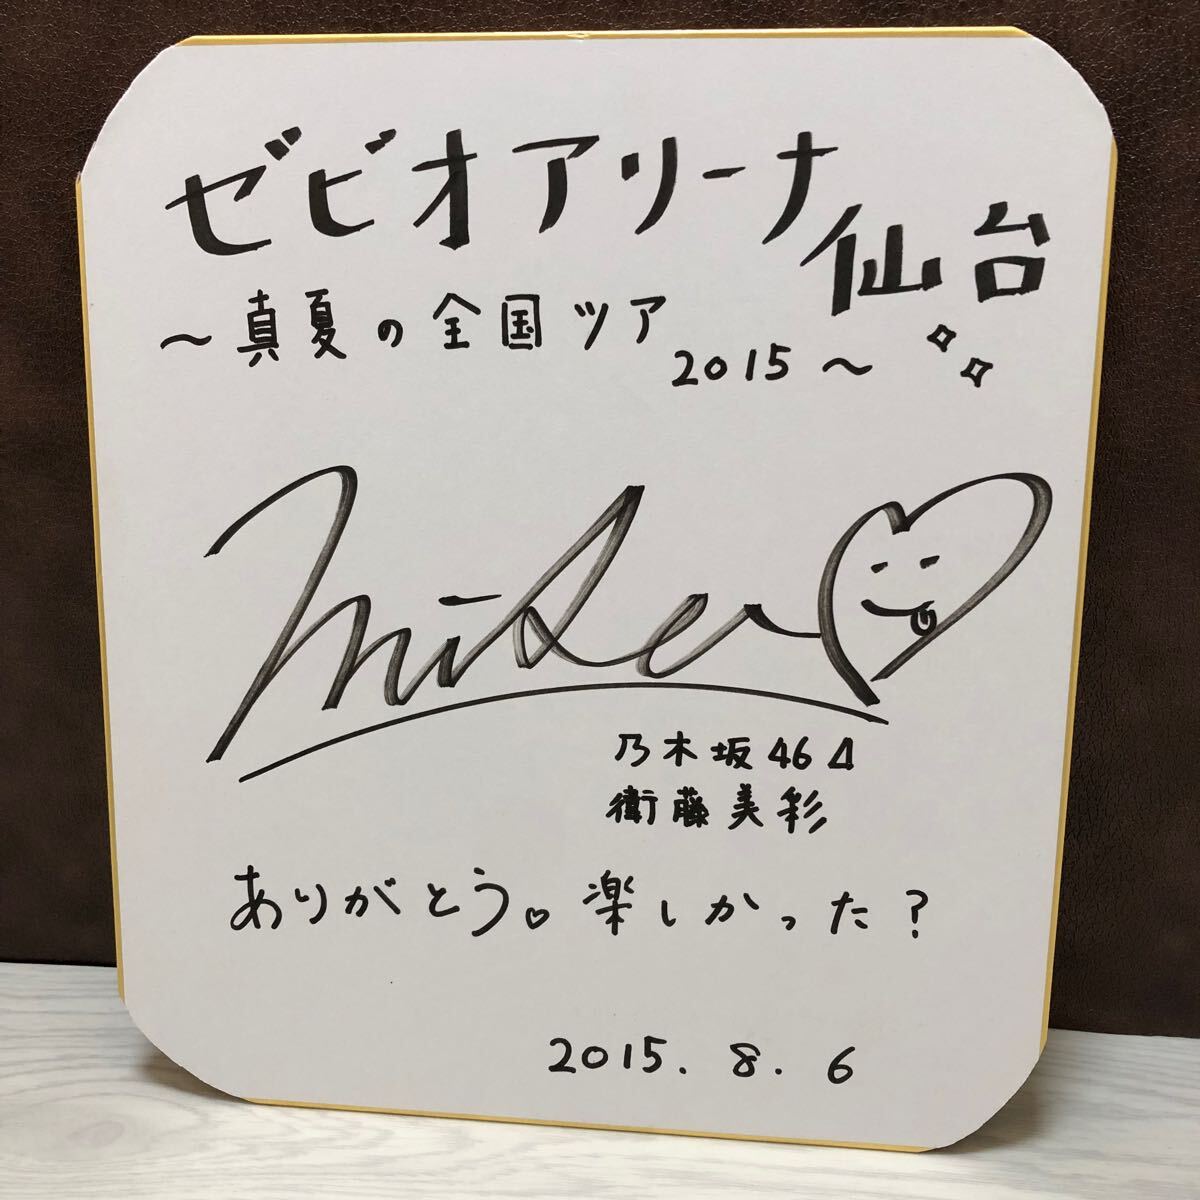 ゼビオアリーナ仙台
〜真夏の全国ツア2015〜
misa
乃木坂46
衛藤美彩
ありがとう。楽しかった?
2015.8.6